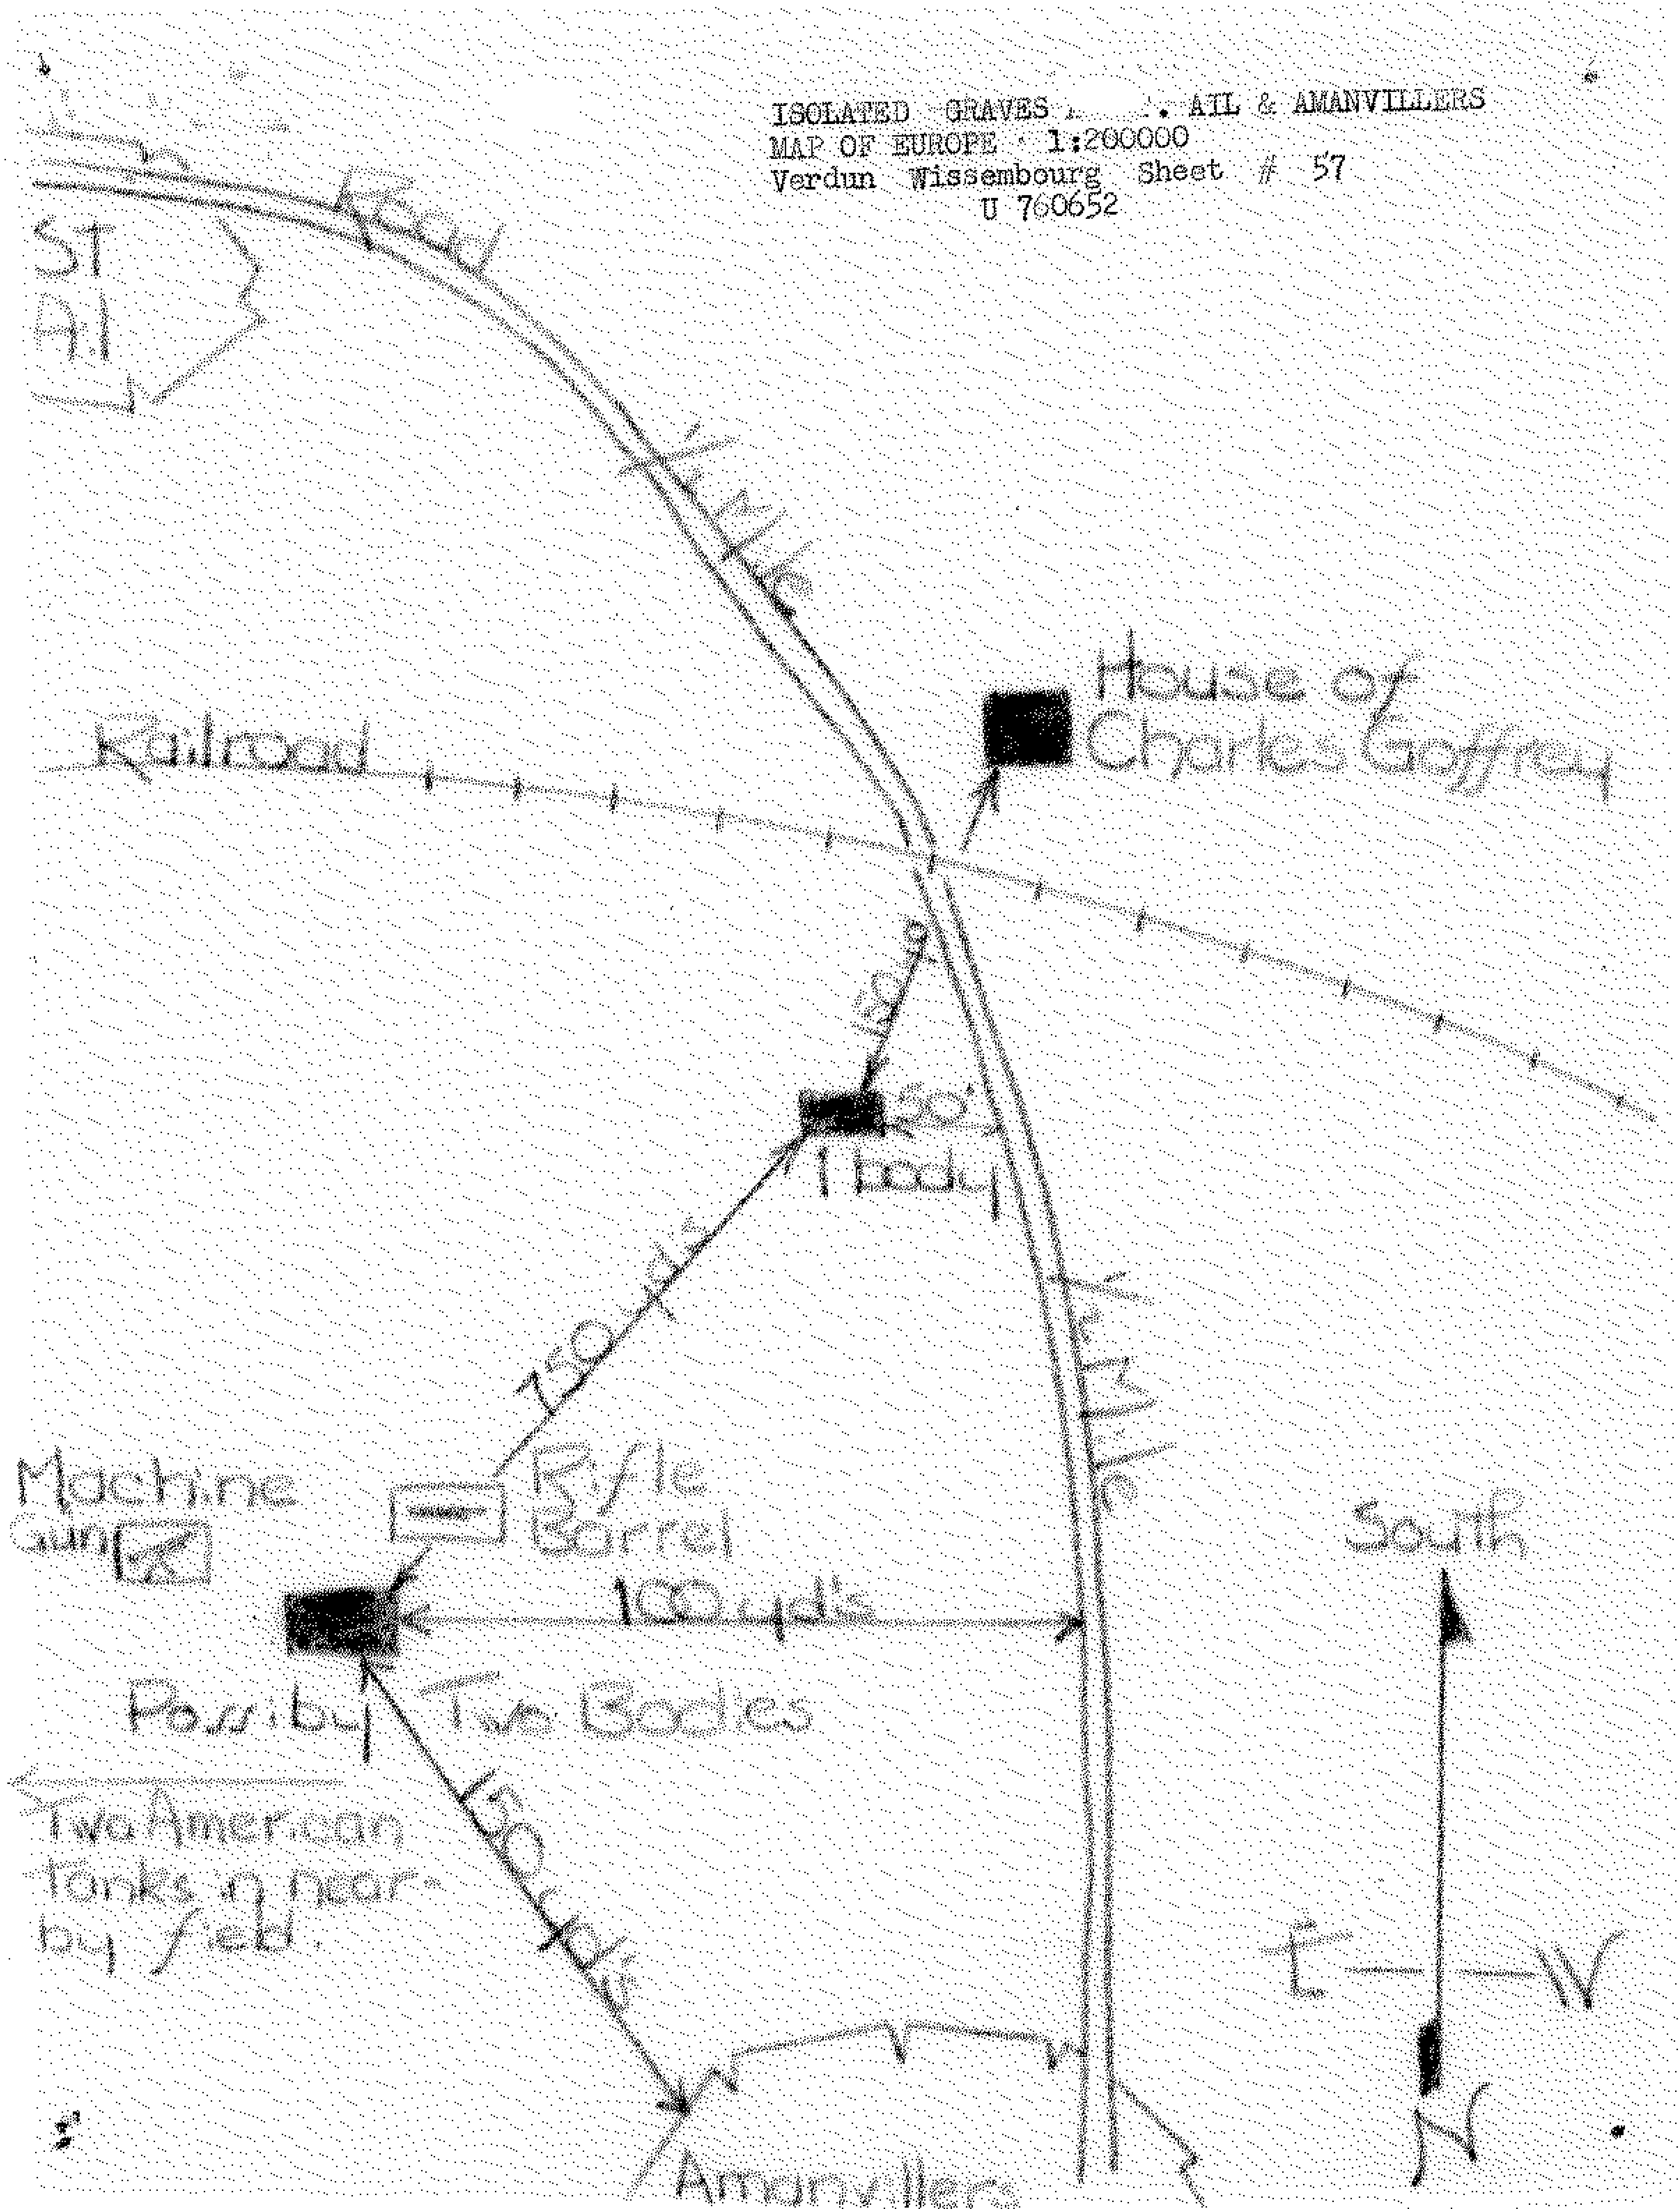 ISOLATED GRAVES . AIL & AMANVILLERS
MAP OF EUROPE 1:200000
Verdun Wissembourg Sheet # 57
U 760652
Road
ST
Ail
House of
Charles Goffrey
Railroad
50'
1 body
750 Yds
Machine
Gun
Rifle
Barrel
100 yd's
South
Possiby Two Bodies
150 Yd's
Two American
Tanks in near-
by field.
E W
N
Amanvillers